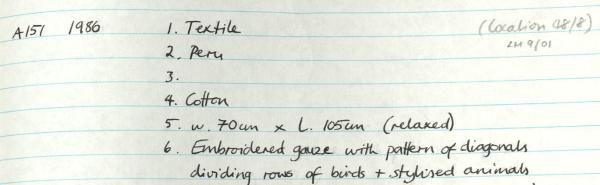 A151 1986 1. Textile (Location 48/8)
2. Peru LM 9/01
3.
4. Cotton
5. w. 70cm x L. 105cm (relaxed)
6. Embroidered gauze with pattern of diagonals
dividing rows of birds + stylised animals